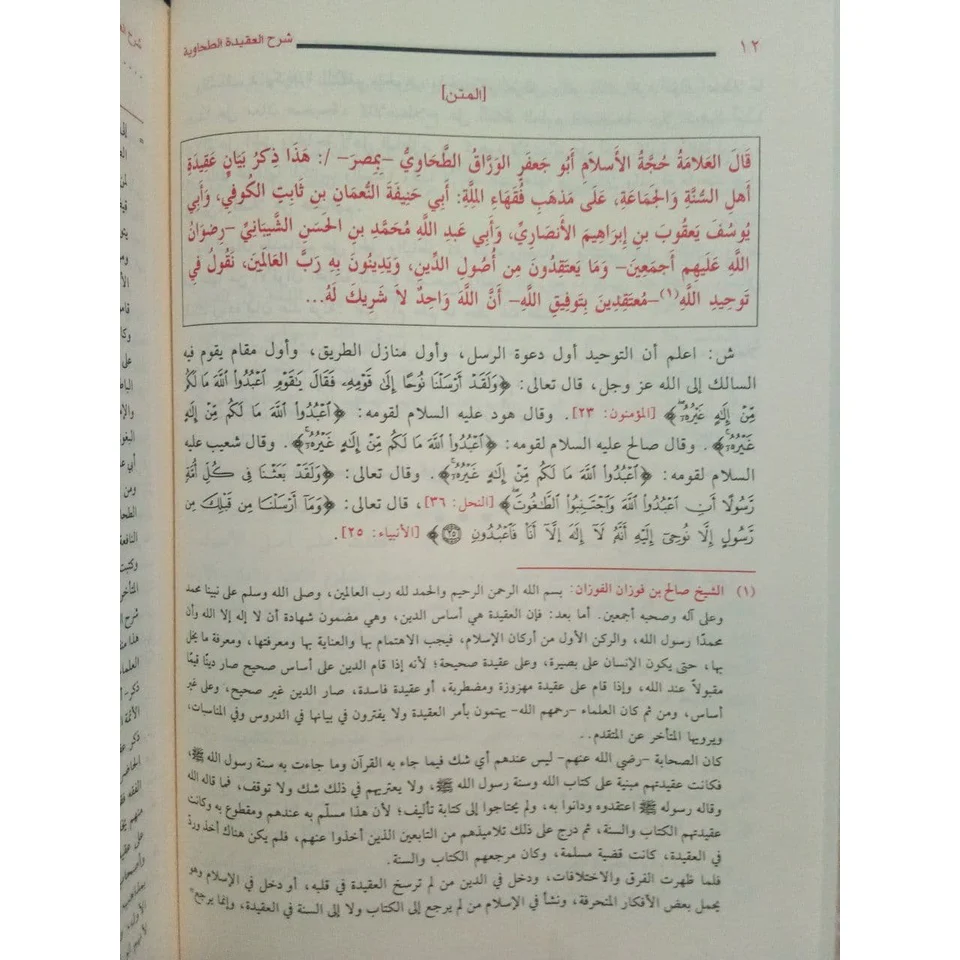 ١٢
شرح العقيدة الطحاوية
[المتن]
قَالَ العَلاَمَةُ حُجَّةُ الأَسلاَمِ أَبُو جَعفَرٍ الوَرَّاقُ الطَّحَاوِيُّ –بِمِصرَ– /: هَذَا ذِكرُ بَيَانِ عَقِيدَةِ
أَهلِ السُّنَّةِ وَالجَمَاعَةِ، عَلَى مَذهَبِ فُقَهَاءِ المِلَّةِ: أَبِي حَنِيفَةَ النُّعمَانِ بنِ ثَابِتٍ الكُوفِيِّ، وَأَبِي
يُوسُفَ يَعقُوبَ بنِ إِبرَاهِيمَ الأَنصَارِيِّ، وَأَبِي عَبدِ اللَّهِ مُحَمَّدِ بنِ الحَسَنِ الشَّيبَانِيِّ –رِضوَانُ
اللَّهِ عَلَيهِم أَجمَعِينَ– وَمَا يَعتَقِدُونَ مِن أُصُولِ الدِّينِ، وَيَدِينُونَ بِهِ رَبَّ العَالَمِينَ، نَقُولُ فِي
تَوحِيدِ اللَّهِ(١)–مُعتَقِدِينَ بِتَوفِيقِ اللَّهِ– أَنَّ اللَّهَ وَاحِدٌ لاَ شَرِيكَ لَهُ...
ش: اعلم أن التوحيد أول دعوة الرسل، وأول منازل الطريق، وأول مقام يقوم فيه
السالك إلى الله عز وجل، قال تعالى: ﴿وَلَقَدْ أَرْسَلْنَا نُوحًا إِلَىٰ قَوْمِهِۦ فَقَالَ يَٰقَوْمِ ٱعْبُدُواْ ٱللَّهَ مَا لَكُم
مِّنْ إِلَٰهٍ غَيْرُهُۥٓ﴾ [المؤمنون: ٢٣]. وقال هود عليه السلام لقومه: ﴿ٱعْبُدُواْ ٱللَّهَ مَا لَكُم مِّنْ إِلَٰهٍ
غَيْرُهُۥٓ﴾. وقال صالح عليه السلام لقومه: ﴿ٱعْبُدُواْ ٱللَّهَ مَا لَكُم مِّنْ إِلَٰهٍ غَيْرُهُۥٓ﴾. وقال شعيب عليه
السلام لقومه: ﴿ٱعْبُدُواْ ٱللَّهَ مَا لَكُم مِّنْ إِلَٰهٍ غَيْرُهُۥٓ﴾. وقال تعالى: ﴿وَلَقَدْ بَعَثْنَا فِي كُلِّ أُمَّةٍ
رَّسُولًا أَنِ ٱعْبُدُواْ ٱللَّهَ وَٱجْتَنِبُواْ ٱلطَّٰغُوتَ﴾ [النحل: ٣٦]، قال تعالى: ﴿وَمَآ أَرْسَلْنَا مِن قَبْلِكَ مِن
رَّسُولٍ إِلَّا نُوحِىٓ إِلَيْهِ أَنَّهُۥ لَآ إِلَٰهَ إِلَّآ أَنَا۠ فَٱعْبُدُونِ ۝٢٥﴾ [الأنبياء: ٢٥].
(١) الشيخ صالح بن فوزان الفوزان: بسم الله الرحمن الرحيم والحمد لله رب العالمين، وصلى الله وسلم على نبينا محمد
وعلى آله وصحبه أجمعين. أما بعد: فإن العقيدة هي أساس الدين، وهي مضمون شهادة أن لا إله إلا الله وأن
محمدًا رسول الله، والركن الأول من أركان الإسلام، فيجب الاهتمام بها والعناية بها ومعرفتها، ومعرفة ما يخل
بها، حتى يكون الإنسان على بصيرة، وعلى عقيدة صحيحة؛ لأنه إذا قام الدين على أساس صحيح صار دينًا قيمًا
مقبولاً عند الله، وإذا قام على عقيدة مهزوزة ومضطربة، أو عقيدة فاسدة، صار الدين غير صحيح، وعلى غير
أساس، ومن ثم كان العلماء –رحمهم الله– يهتمون بأمر العقيدة ولا يفترون في بيانها في الدروس وفي المناسبات،
ويرويها المتأخر عن المتقدم..
كان الصحابة –رضي الله عنهم– ليس عندهم أي شك فيما جاء به القرآن وما جاءت به سنة رسول الله ﷺ،
فكانت عقيدتهم مبنية على كتاب الله وسنة رسول الله ﷺ، ولا يعتريهم في ذلك شك ولا توقف، فما قاله الله
وقاله رسوله ﷺ اعتقدوه ودانوا به، ولم يحتاجوا إلى كتابة تأليف؛ لأن هذا مسلّم به عندهم ومقطوع به وكانت
عقيدتهم الكتاب والسنة، ثم درج على ذلك تلاميذهم من التابعين الذين أخذوا عنهم، فلم يكن هناك أخذ ورد
في العقيدة، كانت قضية مسلمة، وكان مرجعهم الكتاب والسنة.
فلما ظهرت الفرق والاختلافات، ودخل في الدين من لم ترسخ العقيدة في قلبه، أو دخل في الإسلام وهو
يحمل بعض الأفكار المنحرفة، ونشأ في الإسلام من لم يرجع إلى الكتاب ولا إلى السنة في العقيدة، وإنما يرجع=